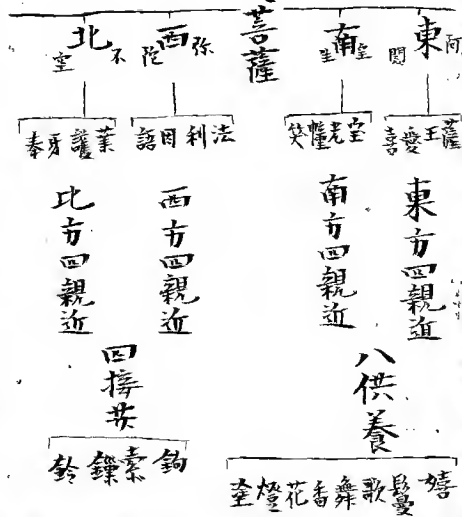 菩薩
東
阿閦
南
宝生
西
弥陀
北
不空
薩王愛喜
宝光幢笑
法利因語
業護牙拳
東方四親近
南方四親近
西方四親近
北方四親近
八供養
嬉鬘歌舞香花燈塗
四摂
鉤索鏁鈴